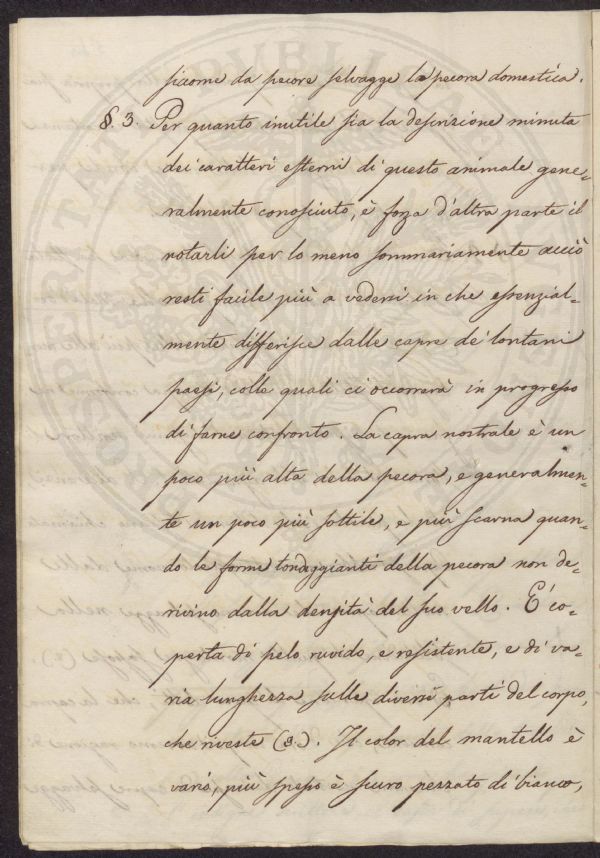 siccome da pecore selvagge la pecora domestica.
§. 3. Per quanto inutile sia la descrizione minuta
dei caratteri esterni di questo animale gene-
ralmente conosciuto, è forza d'altra parte il
notarli per lo meno sommariamente acciò
resti facile più a vedersi in che essenzial-
mente differisce dalle capre de' lontani
paesi, colle quali ci occorrerà in progresso
di farne confronto. La capra nostrale è un
poco più alta della pecora, e generalmen-
te un poco più sottile, e più scarna quan-
do le forme tondeggianti della pecora non de-
rivino dalla densità del suo vello. E' co-
perta di pelo ruvido, e resistente, e di va-
ria lunghezza sulle diverse parti del corpo,
che riveste (3.). Il color del mantello è
vario, più spesso è scuro pezzato di bianco,